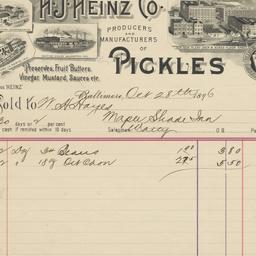 H.J. HEINZ CO.
PRODUCERS
AND
MANUFACTURERS
OF
PICKLES
Preserves, Fruit Butters,
Vinegar, Mustard, Sauces etc.
Baltimore, Oct 28th 1896
Sold to W H Hayes
Maple Shade Inn
30 days or 2 per cent
cash if remitted within 10 days
Salesman
2 Dz Beans 1.90 3.80
2 " 2.75 5.50